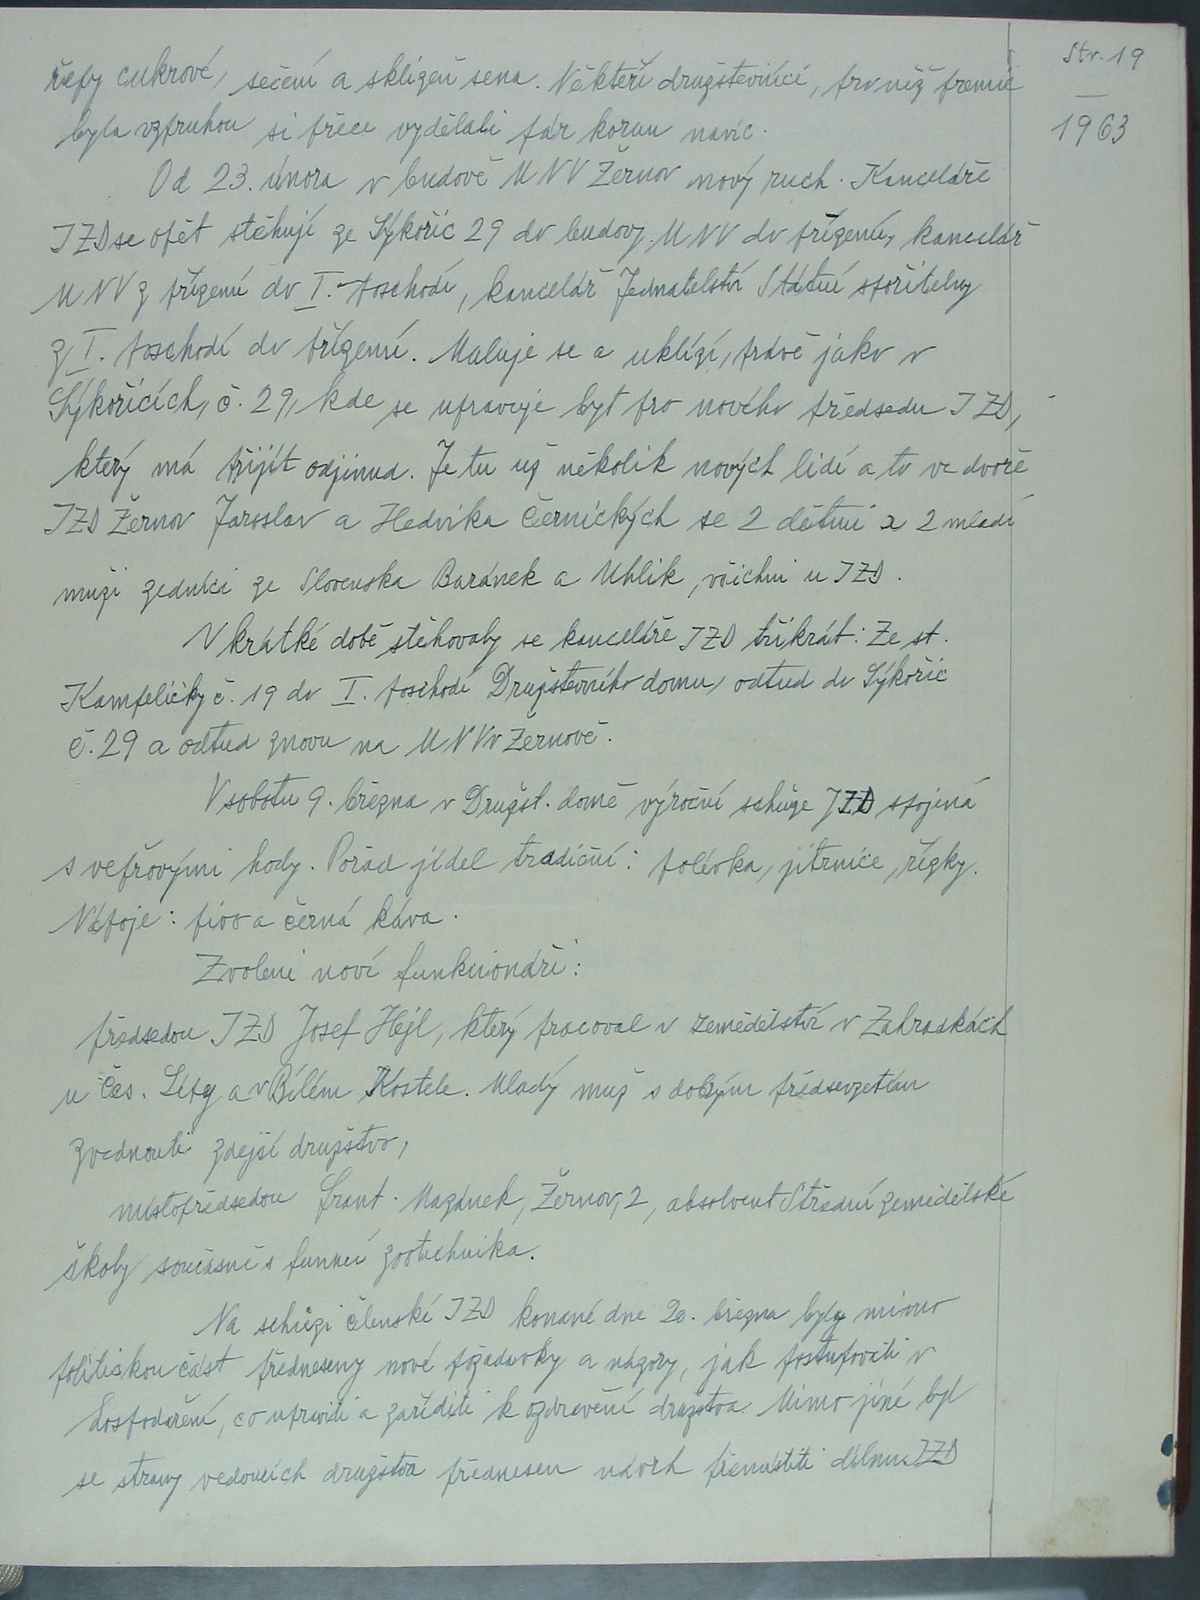 Str. 19
1963
řepy cukrové, sečení a sklizeň sena. Někteří družstevníci, pro něž premie
byla vzpruhou si přece vydělali pár korun navíc.
Od 23. února v budově MNV Žernov nový ruch. Kanceláře
JZD se opět stěhují ze Sýkořic 29 do budovy MNV do přízemí, kancelář
MNV z přízemí do I. poschodí, kancelář Jednatelství Státní spořitelny
z I. poschodí do přízemí. Maluje se a uklízí, právě jako v
Sýkořicích, č. 29, kde se upravuje byt pro nového předsedu JZD,
který má přijít odjinud. Je tu už několik nových lidí a to ve dvoře
JZD Žernov Jaroslav a Hedvika Černických se 2 dětmi a 2 mladí
muži zedníci ze Slovenska Baránek a Uhlik, všichni u JZD.
V krátké době stěhovaly se kanceláře JZD třikrát: Ze st.
Kampeličky č. 19 do I. poschodí Družstevního domu, odtud do Sýkořic
č. 29 a odtud znovu na MNV v Žernově.
V sobotu 9. března v Družst. domě výroční schůze JZD spojená
s vepřovými hody. Pořad jídel tradiční: polévka, jitrnice, řízky.
Nápoje: pivo a černá káva.
Zvoleni noví funkcionáři:
předsedou JZD Josef Hejl, který pracoval v zemědělství v Zahradkách
u Čes. Lípy a v Bílém Kostele. Mladý muž s dobrým předsevzetím
zvednouti zdejší družstvo,
místopředsedou Frant. Mazánek, Žernov, 2, absolvent Střední zemědělské
školy současně s funkcí zootechnika.
Na schůzi členské JZD konané dne 20. března byly mimo
politickou část předneseny nové požadavky a názory, jak postupovati v
hospodaření, co upraviti a zaříditi k ozdravění družstva. Mimo jiné byl
se strany vedoucích družstva přednesen návrh přemístiti dílnu JZD